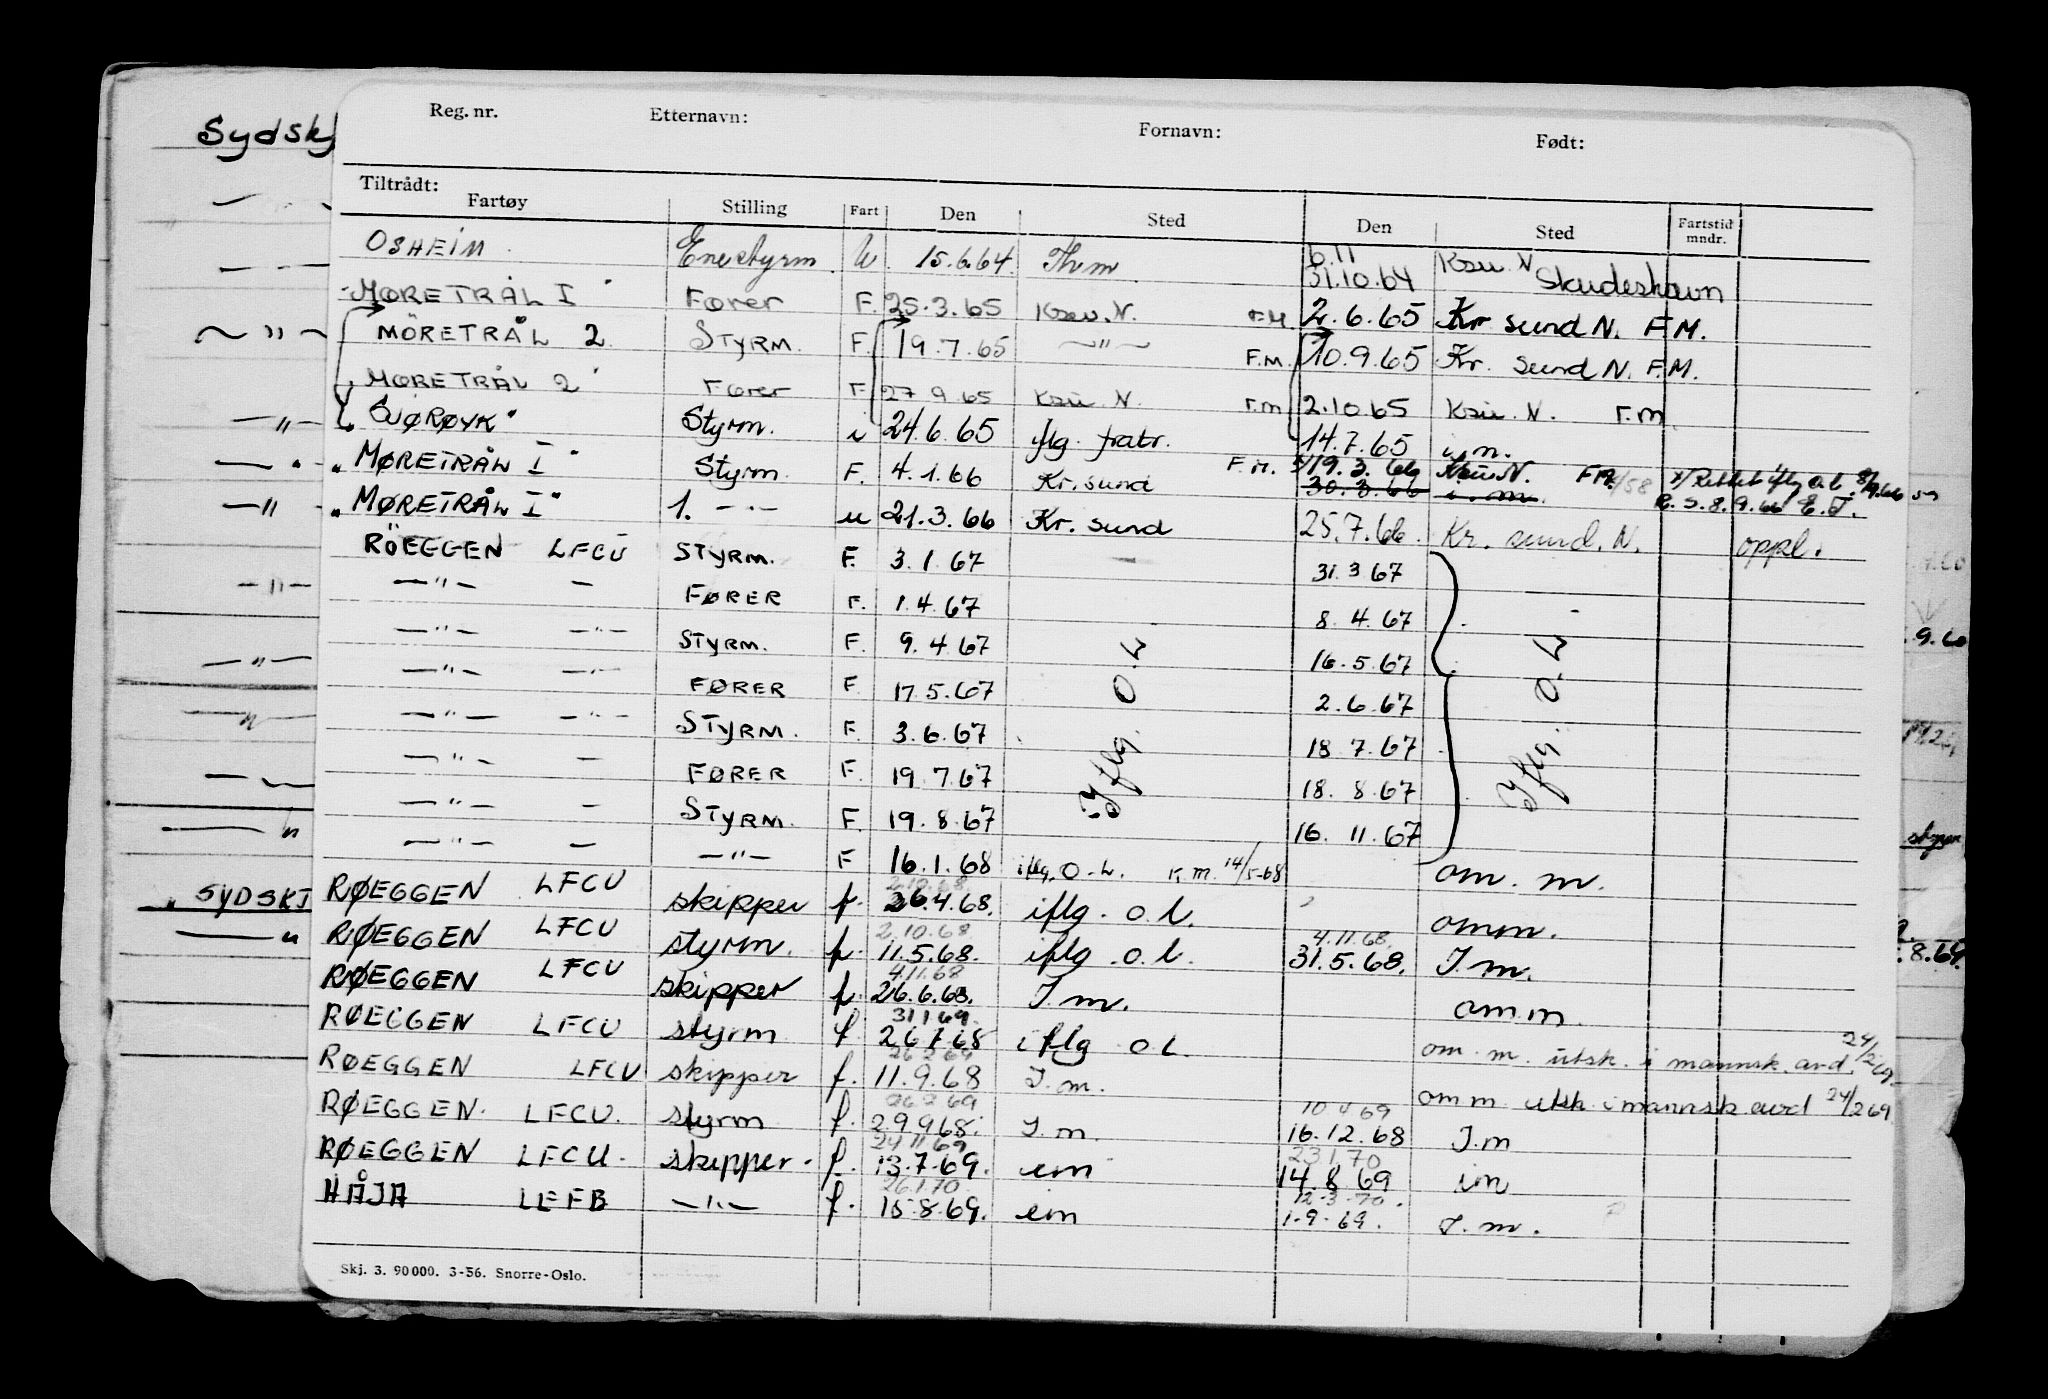 Reg. nr. Etternavn: Fornavn: Født:
Tiltrådt:
Fartøy Stilling Fart Den Sted Den Sted Fartstid mndr.
OSHEIM Enestyrm. U. 15.6.64. Thm 6.11 31.10.64 Ksu. N Skudeshavn
"MØRETRÅL I" Fører F. 25.3.65 Ksu. N. F.M. 2.6.65 Kr sund N. F.M.
MÖRETRÅL 2 STYRM. F. 19.7.65 —"— F.M. 10.9.65 Kr. sund N. F.M.
"MØRETRÅL 2" Fører F. 27.9.65 Ksu. N. F.m 2.10.65 Ksu. N. F.m
Styrm. i 24.6.65 iflg. fratr. 14.7.65 i.m.
"MØRETRÅL I" Styrm. F. 4.1.66 Kr. sund F.M. x/19.3.66 Ksu. N. F.M.
30.3.66 i.m.
R.S. 8.9.66 E.T.
"MØRETRÅL I" 1. —"— u 21.3.66 Kr. sund 25.7.66. Kr. sund. N. oppl.
RÖEGGEN LFCU STYRM. F. 3.1.67 — 31.3.67
—"— — FØRER F. 1.4.67 8.4.67
—"— —"— STYRM. F. 9.4.67 16.5.67
—"— —"— FØRER F 17.5.67 2.6.67
—"— —"— STYRM. F. 3.6.67 18.7.67
—"— — FØRER F. 19.7.67 18.8.67
—"— — STYRM. F. 19.8.67 16.11.67
Iflg. O.L
Iflg. O.L
—"— — —"— F 16.1.68 iflg. O.L. K.M. 14/5-68 om. m.
2.10.68.
RØEGGEN LFCU skipper f. 26.4.68. iflg. o.l. omm.
2.10.68 4.11.68.
RØEGGEN LFCU styrm. f. 11.5.68. iflg. o.l. 31.5.68. I.m.
4.11.68
RØEGGEN LFCU skipper f. 26.6.68. I.m. om.m.
31.1.69.
RØEGGEN LFCU styrm f. 26.7.68 iflg o.l. om. m. utsk. i mannsk. avd. 24/2 69.
26.2.69
RØEGGEN LFCU skipper f. 11.9.68 I.m. om m. utsk. i mannsk avd 24/2 69
26.2.69 10.4.69
RØEGGEN. LFCU. styrm f. 29.9.68. I.m. 16.12.68 I.m
24.11.69 23.1.70
RØEGGEN LFCU. skipper. f. 13.7.69. im 14.8.69 im
26.1.70 12.3.70.
HÅJA LEFB —"— f. 15.8.69. im 1.9.69. I.m.
Skj. 3. 90000. 3-56. Snorre-Oslo.
Sydskj
—"—
—"—
—"—
—"—
—"—
—"—
"SYDSKJ
—"
9.60
styrm
8.69.